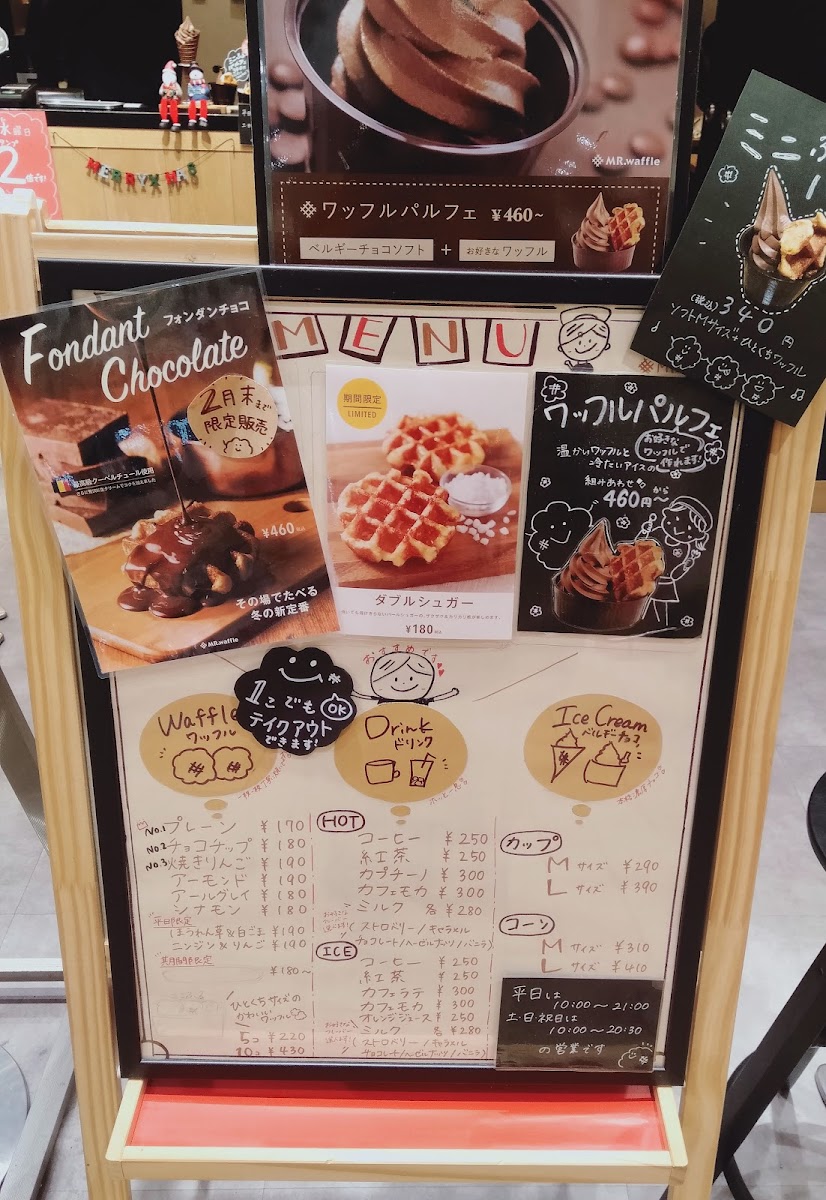 MERRY
2
MR.waffle
ワッフルパルフェ ¥460~
ベルギーチョコソフト + お好きなワッフル
ミニ
(税込) 340円
ソフトMサイズ+ひとくちワッフル
MENU
Fondant
フォンダンチョコ
Chocolate
2月末まで
限定販売
最高級クーベルチュール使用
¥460
その場でたべる
冬の新定番
MR.waffle
期間限定
LIMITED
ダブルシュガー
¥180
ワッフルパルフェ
温かいワッフルと
冷たいアイスの
お好きな
ワッフルで
作れます!
組みあわせ
460円から~
おすすめです
1こでも
テイクアウト
できます!
OK
Waffle
ワッフル
No.1 プレーン ¥170
No.2 チョコチップ ¥180
No.3 焼きりんご ¥190
アーモンド ¥190
アールグレイ ¥180
シナモン ¥180
平日限定
ほうれん草&白ごま ¥190
ニンジン&りんご ¥190
期間限定
¥180~
ひとくちサイズの
かわいいワッフル
5コ ¥220
10コ ¥430
Drink
ドリンク
HOT
コーヒー ¥250
紅茶 ¥250
カプチーノ ¥300
カフェモカ ¥300
ミルク 各¥280
(ストロベリー/キャラメル
チョコレート/ヘーゼルナッツ/バニラ)
ICE
コーヒー ¥250
紅茶 ¥250
カフェラテ ¥300
カフェモカ ¥300
オレンジジュース ¥250
ミルク 各¥280
(ストロベリー/キャラメル
チョコレート/ヘーゼルナッツ/バニラ)
Ice Cream
ベルギーチョコ
カップ
M サイズ ¥290
L サイズ ¥390
コーン
M サイズ ¥310
L サイズ ¥410
平日は
10:00~21:00
土・日・祝日は
10:00~20:30
の営業です